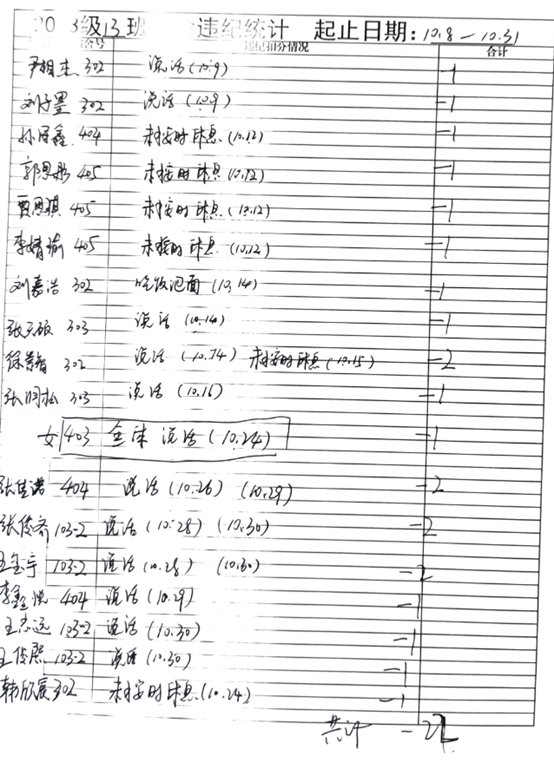 20 3级13班 违纪统计 起止日期:10.8—10.31
舍号 违纪扣分情况 合计
尹相杰 302 说话(10.9) -1
刘子墨 302 说话(10.9) -1
孙泽鑫 404 未按时休息(10.12) -1
郭恩彤 405 未按时休息(10.12) -1
贾恩琪 405 未按时休息(10.12) -1
李婧瑜 405 未按时休息(10.12) -1
刘嘉浩 302 吃饭泡面(10.14) -1
303 说话(10.14) -1
302 说话(10.14) 未按时休息(10.15) -2
张闯松 303 说话(10.16) -1
女403 全体说话(10.24) -1
张佳诺 404 说话(10.26) (10.29) -2
张俊齐 103-2 说话(10.28) (10.30) -2
103-2 说话(10.28) (10.30) -2
李鑫悦 404 说话(10.29) -1
王志远 103-2 说话(10.30) -1
王俊熙 103-2 说话(10.30) -1
韩欣宸 302 未按时休息(10.24) -1
共计 -22